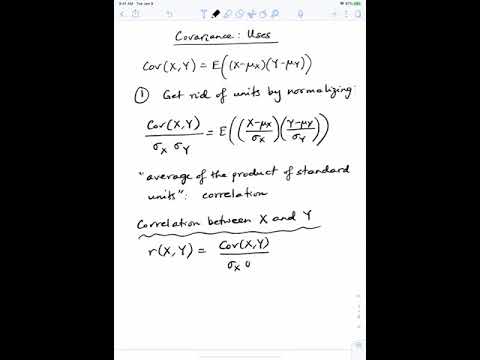 Covariance: Uses
Cov(X,Y) = E((X-μX)(Y-μY))
① Get rid of units by normalizing:
Cov(X,Y) / σX σY = E(((X-μX)/σX)((Y-μY)/σY))
"average of the product of standard
units": correlation
Correlation between X and Y
r(X,Y) = Cov(X,Y) / σX